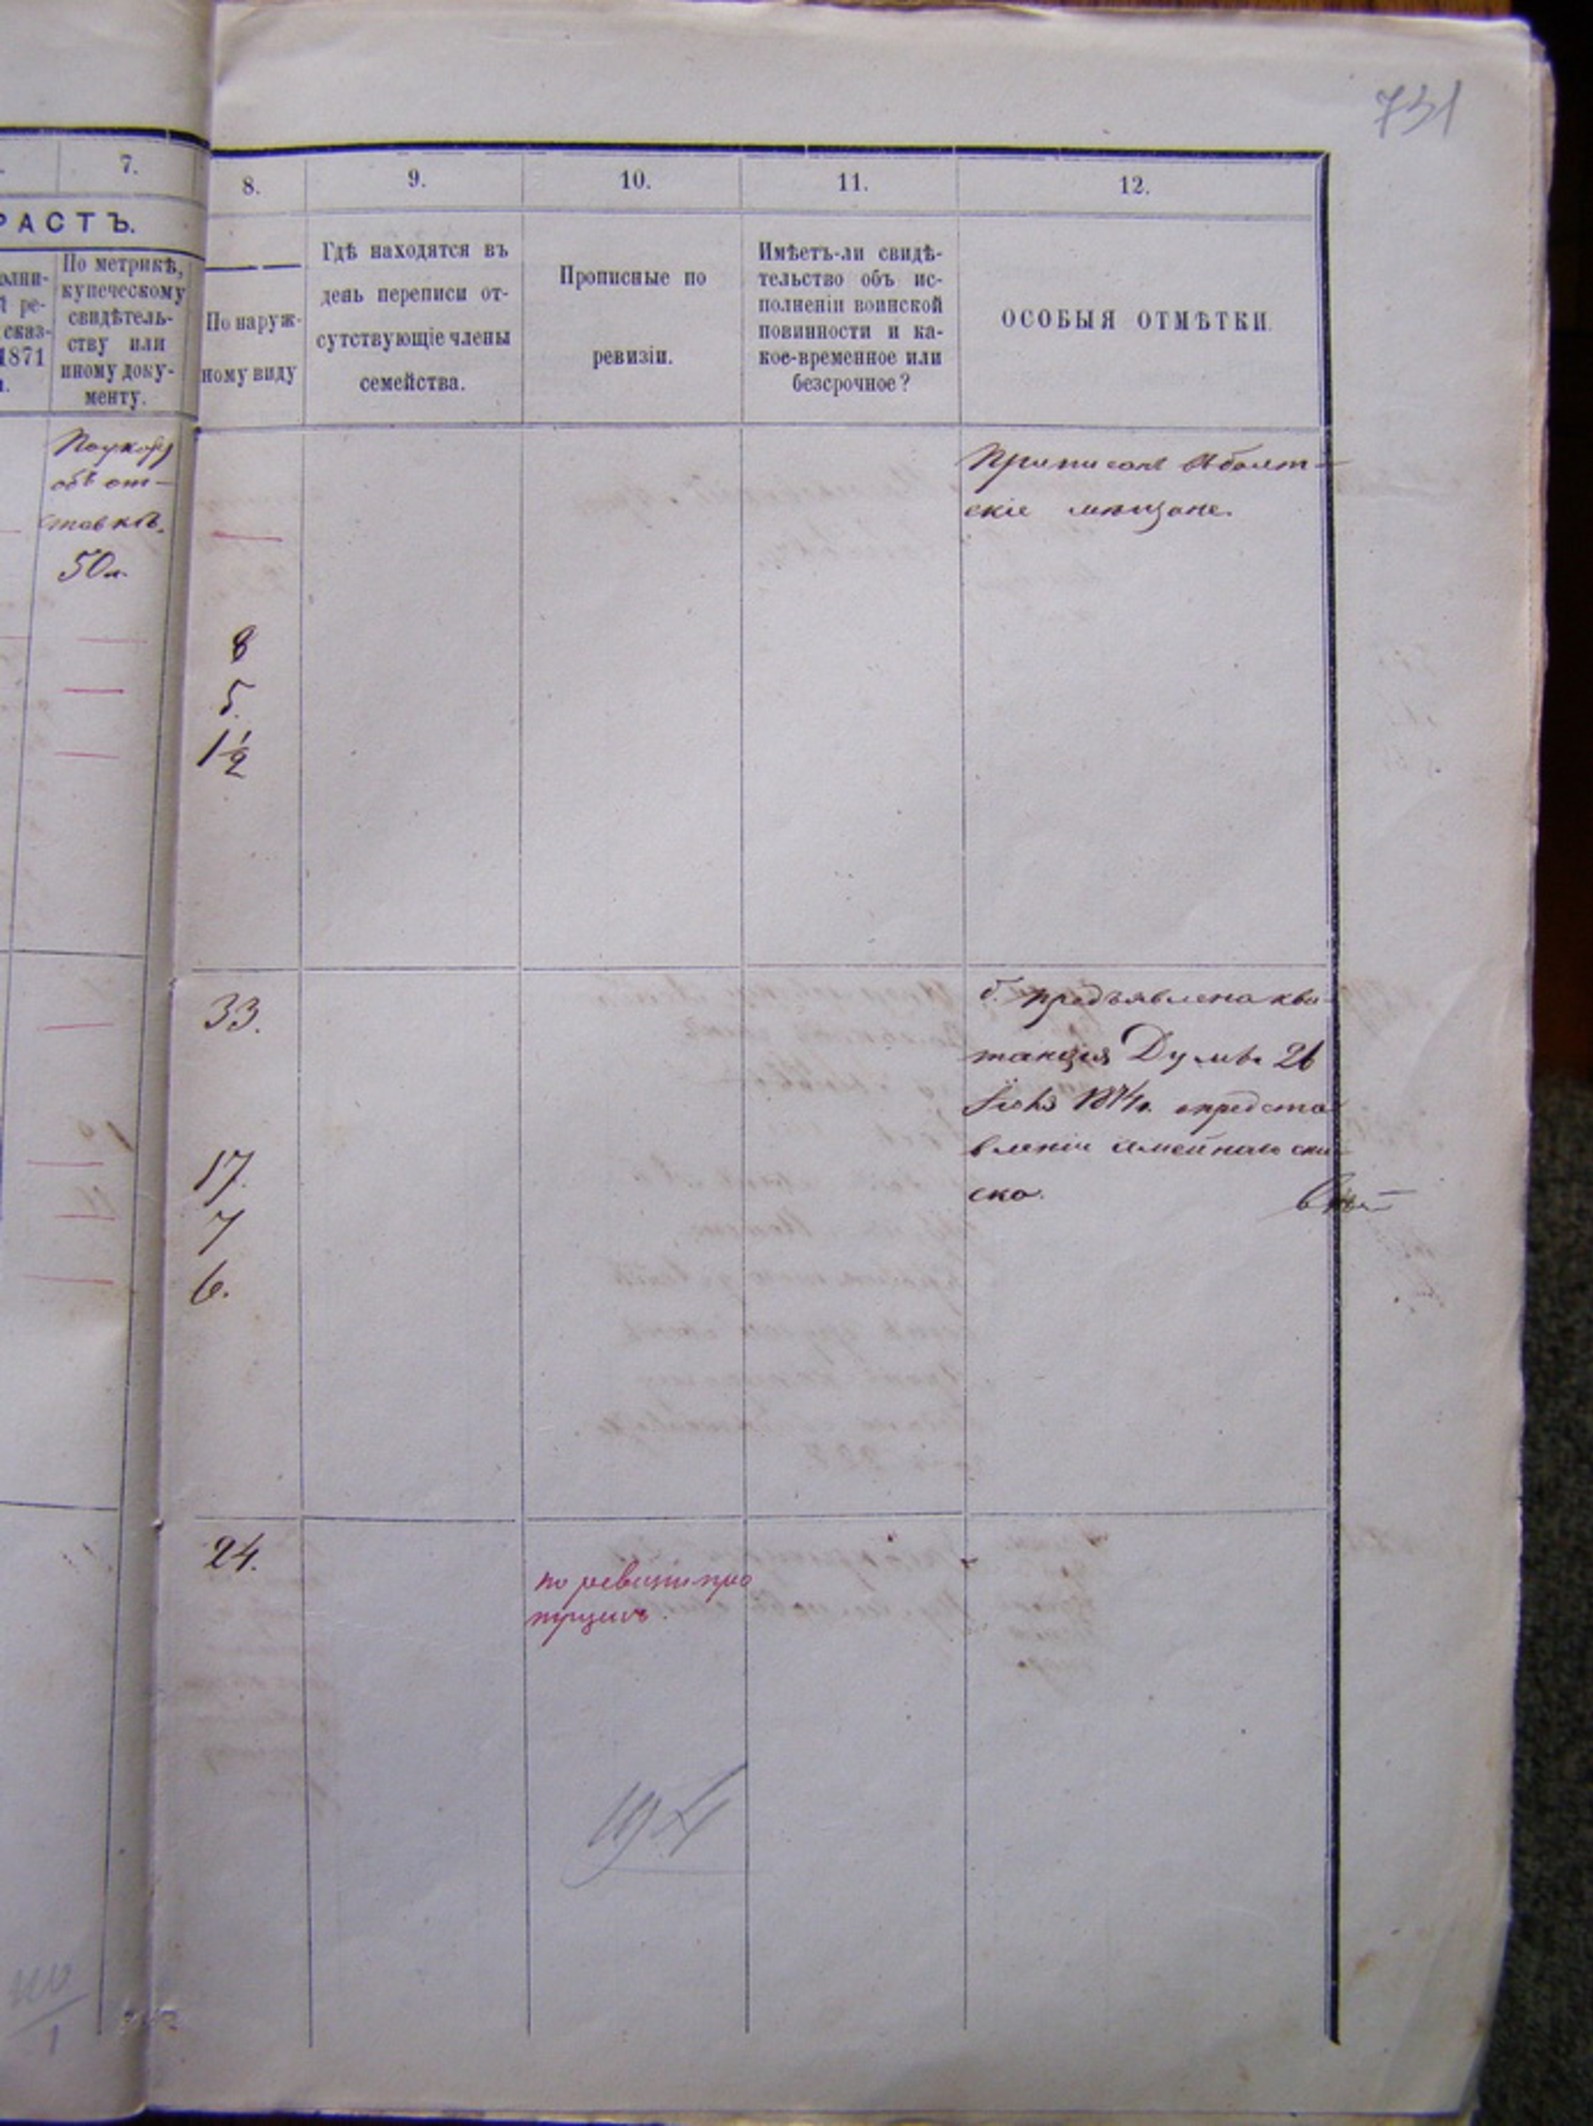 731
7.
8.
9.
10.
11.
12.
РАСТЪ.
По метрикѣ,
купеческому
свидѣтель-
ству или
иному доку-
менту.
олни-
й ре-
сказ-
1871
По наруж-
ному виду
Гдѣ находятся въ
день переписи от-
сутствующіе члены
семейства.
Прописные по
ревизіи.
Имѣетъ-ли свидѣ-
тельство объ ис-
полненіи воинской
повинности и ка-
кое-временное или
безсрочное?
ОСОБЫЯ ОТМѢТКИ.
По указу
объ от-
ставкѣ.
50 л.
Приписанъ въ
скіе мѣщане.
8
5.
1½
33.
предъявлена кви-
танція Думы 26
1874 г. о предста
вленіи семейнаго спи
ска.
17.
7
6.
24.
по ревизіи про
194